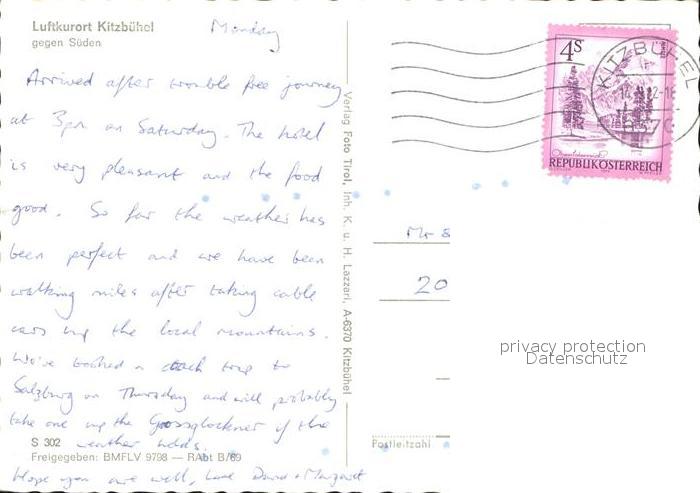 Luftkurort Kitzbühel
gegen Süden
Monday
Arrived after trouble free journey
at 3pm on Saturday. The hotel
is very pleasant and the food
good. So far the weather has
been perfect and we have been
walking miles after taking cable
cars up the local mountains.
We've booked a coach trip to
Salzburg on Thursday and will probably
take one up the Grossglockner if the
weather holds.
Hope you are well, Love David + Margaret
S 302
Freigegeben: BMFLV 9798 — RAbt B/69
Verlag Foto Tirol, Inh. K. u. H. Lazzari, A-6370 Kitzbühel
4S
REPUBLIK ÖSTERREICH
KITZBÜHEL
6370
Mr &
20
privacy protection
Datenschutz
Postleitzahl